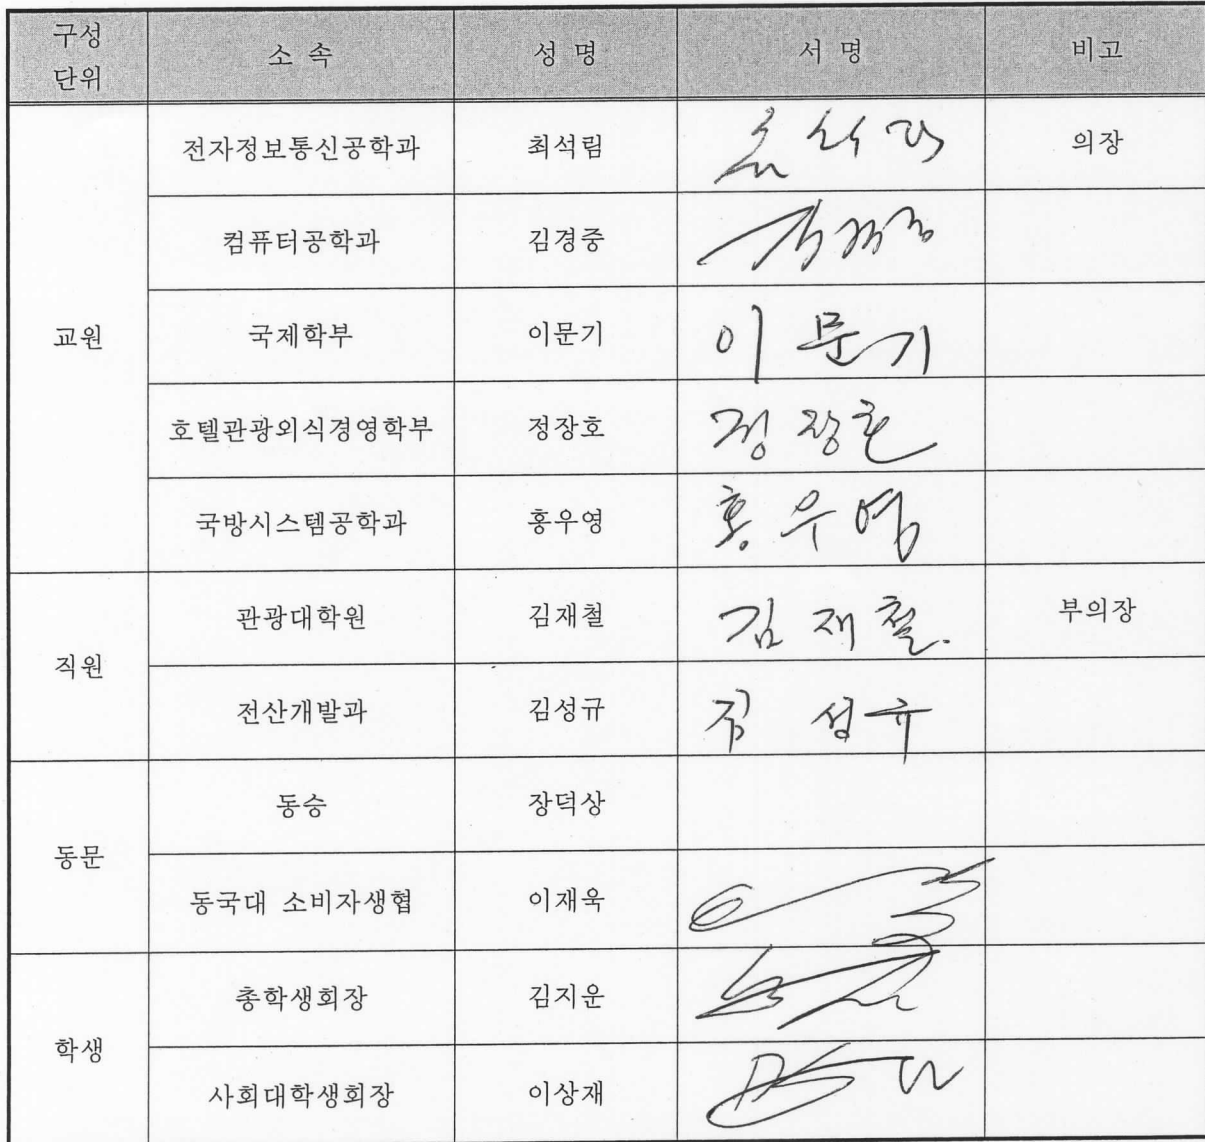 구성
단위
소 속
성 명
서 명
비고
교원
전자정보통신공학과
최석림
의장
컴퓨터공학과
김경중
국제학부
이문기
이문기
호텔관광외식경영학부
정장호
정장호
국방시스템공학과
홍우영
홍우영
직원
관광대학원
김재철
김재철.
부의장
전산개발과
김성규
김성규
동문
동승
장덕상
동국대 소비자생협
이재욱
학생
총학생회장
김지운
사회대학생회장
이상재